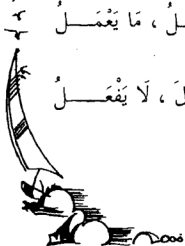 ، مَا يَعْمَــــلُ
، لَا يَفْعَــــلُ